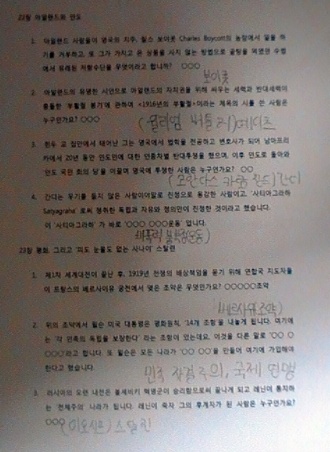 22장 아일랜드와 인도
1. 아일랜드 사람들이 영국의 지주, 찰스 보이콧 Charles Boycott의 농장에서 일을 하
기를 거부하고, 또 그가 가지고 온 상품을 사지 않는 방법으로 골탕을 먹였던 수법
에서 유래된 저항수단을 무엇이라고 합니까? ○○○
보이콧
2. 아일랜드의 유명한 시인으로 아일랜드의 자치권을 위해 싸우는 세력과 반대세력이
충돌한 '부활절 봉기'에 관하여 <1916년의 부활절>이라는 제목의 시를 쓴 사람은
누구인가요? ○○○
(윌리엄 버틀러)예이츠
3. 힌두 교 집안에서 태어난 그는 영국에서 법학을 전공하고 변호사가 되어 남아프리
카에서 20년 동안 인도인에 대한 인종차별 반대투쟁을 했으며, 이후 인도로 돌아와
'인도 국민 회의 당'을 이끌며 영국에 투쟁한 사람은 누구인가요? ○○
(모한다스 카람찬드)간디
4. 간디는 무기를 들지 않은 사람이야말로 진정으로 용감한 사람이고, '사티아그라하
Satyagraha'로써 쟁취한 독립과 자유와 정의만이 진정한 것이라고 했습니다.
이 '사티아그라하'가 바로 '○○○ ○○○운동' 입니다.
비폭력 불복종(운동)
23장 평화, 그리고 '피도 눈물도 없는 사나이' 스탈린
1. 제1차 세계대전이 끝난 후, 1919년 전쟁의 배상책임을 묻기 위해 연합국 지도자들
이 프랑스의 베르사이유 궁전에서 맺은 조약은 무엇인가요? ○○○○○조약
(베르사유조약)
2. 위의 조약에서 윌슨 미국 대통령은 평화원칙, '14개 조항'을 내놓게 됩니다. 여기에
는 '각 민족의 독립을 보장한다' 라는 조항이 있었는데요. 이것을 다른 말로 '○○
○○○'라고 합니다. 또 윌슨은 모든 나라가 '○○ ○○'을 만들어 여기에 가입해야
한다고 했습니다.
민족 자결주의, 국제 연맹
3. 러시아의 오랜 내전은 볼셰비키 혁명군이 승리함으로써 끝나게 되고 레닌이 통치하
는 '전체주의' 나라가 됩니다. 레닌이 죽자 그의 후계자가 된 사람은 누구인가요?
○○○
(이오시프)스탈린